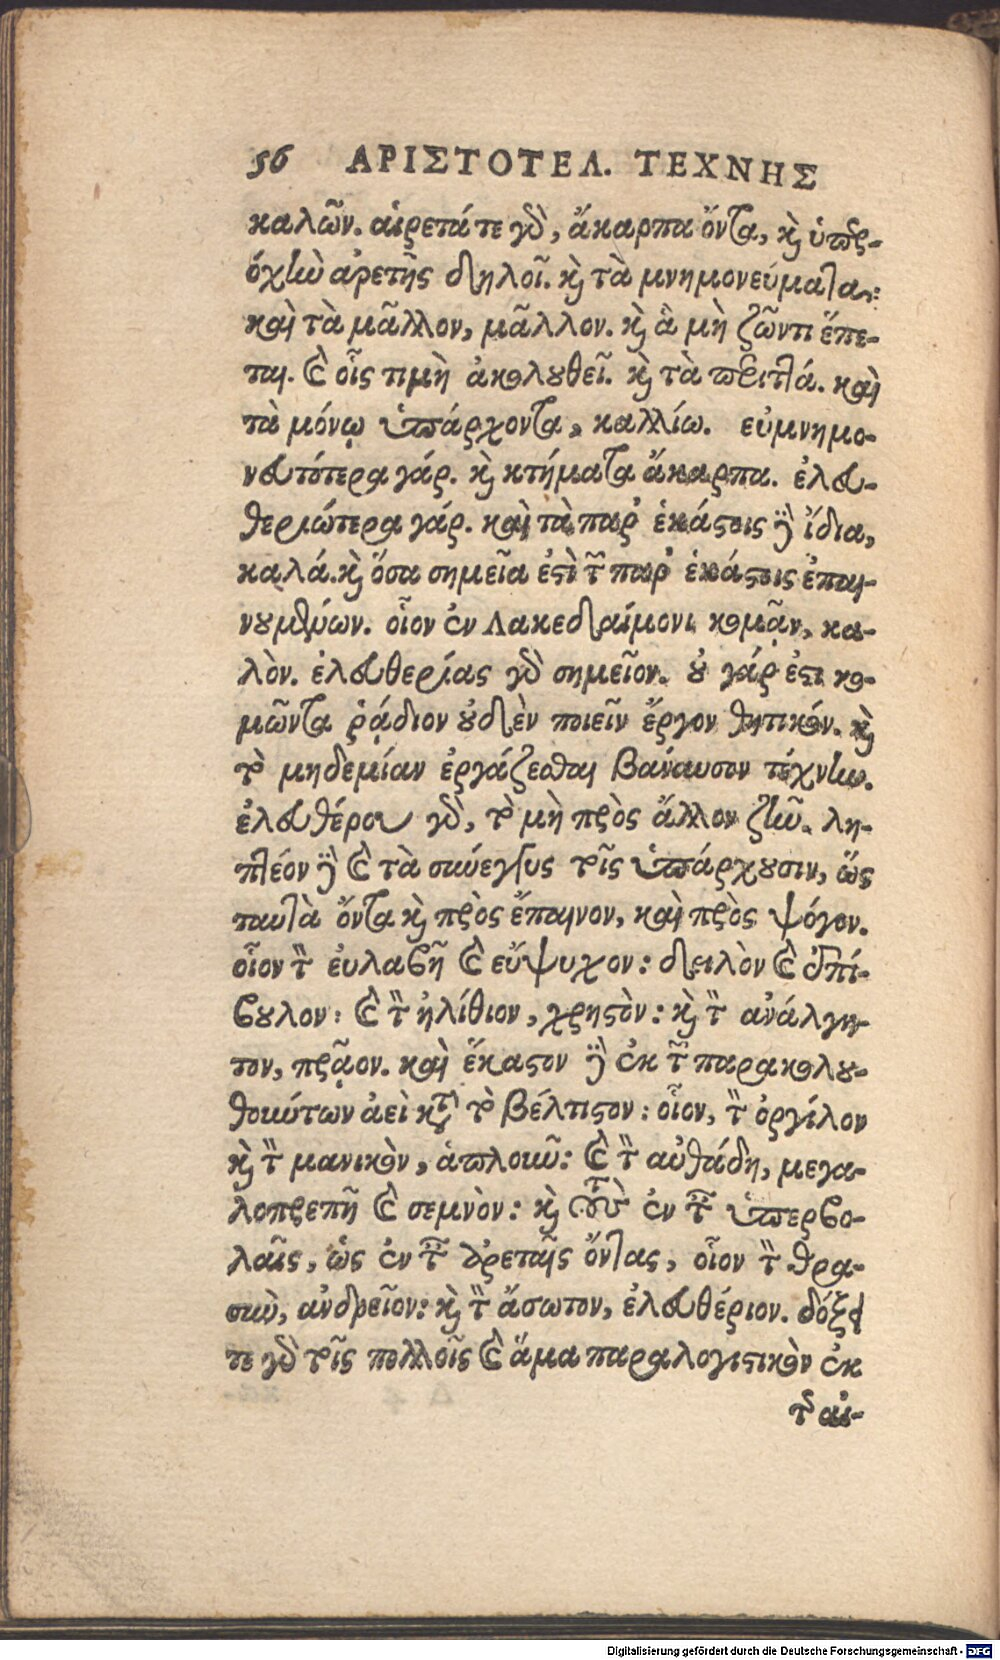 56 ΑΡΙΣΤΟΤΕΛ. ΤΕΧΝΗΣ
καλῶν. αἱρεταί τε γὸ, ἄκαρπα ὄντα, καὶ ὑπερ-
όχὴν ἀρετῆς δηλοῖ. καὶ τὰ μνημονεύματα:
καὶ τὰ μᾶλλον, μᾶλλον. καὶ ἃ μὴ ζῶντι ἕπε-
ται. καὶ οἷς τιμὴ ἀκολουθεῖ. καὶ τὰ περιττά. καὶ
τὰ μόνῳ ὑπάρχοντα, καλλίω. εὐμνημο-
νευτότερα γάρ. καὶ κτήματα ἄκαρπα. ἐλευ-
θεριώτερα γάρ. καὶ τὰ παρ' ἑκάστοις δὲ ἴδια,
καλά. καὶ ὅσα σημεῖα ἐστὶ τῶν παρ' ἑκάστοις ἐπαι-
νουμένων. οἷον ἐν Λακεδαίμονι κομᾷν, κα-
λὸν. ἐλευθερίας γὸ σημεῖον. οὐ γάρ ἐστι κο-
μῶντα ῥᾴδιον οὐδὲν ποιεῖν ἔργον θητικόν. καὶ
τὸ μηδεμίαν ἐργάζεσθαι βάναυσον τέχνην.
ἐλευθέρου γὸ, τὸ μὴ πρὸς ἄλλον ζῆν. λη-
πτέον δὲ καὶ τὰ σύνεγγυς τοῖς ὑπάρχουσιν, ὡς
ταυτὰ ὄντα καὶ πρὸς ἔπαινον, καὶ πρὸς ψόγον.
οἷον τὸν εὐλαβῆ καὶ εὔψυχον: δειλὸν καὶ ἐπί-
βουλον: καὶ τὸν ἠλίθιον, χρηστὸν: καὶ τὸν ἀνάλγη-
τον, πρᾷον. καὶ ἕκαστον δὲ ἐκ τῶν παρακολου-
θούντων ἀεὶ κατὰ τὸ βέλτιστον: οἷον, τὸν ὀργίλον
καὶ τὸν μανικὸν, ἁπλοῦν: καὶ τὸν αὐθάδη, μεγα-
λοπρεπῆ καὶ σεμνὸν: καὶ τοὺς ἐν ταῖς ὑπερβο-
λαῖς, ὡς ἐν ταῖς ἀρεταῖς ὄντας, οἷον τὸν θρα-
σὺν, ἀνδρεῖον: καὶ τὸν ἄσωτον, ἐλευθέριον. δόξει
τε γὸ τοῖς πολλοῖς καὶ ἅμα παραλογιστικὸν ἐκ
τῆς αἰ-
Digitalisierung gefördert durch die Deutsche Forschungsgemeinschaft - DFG